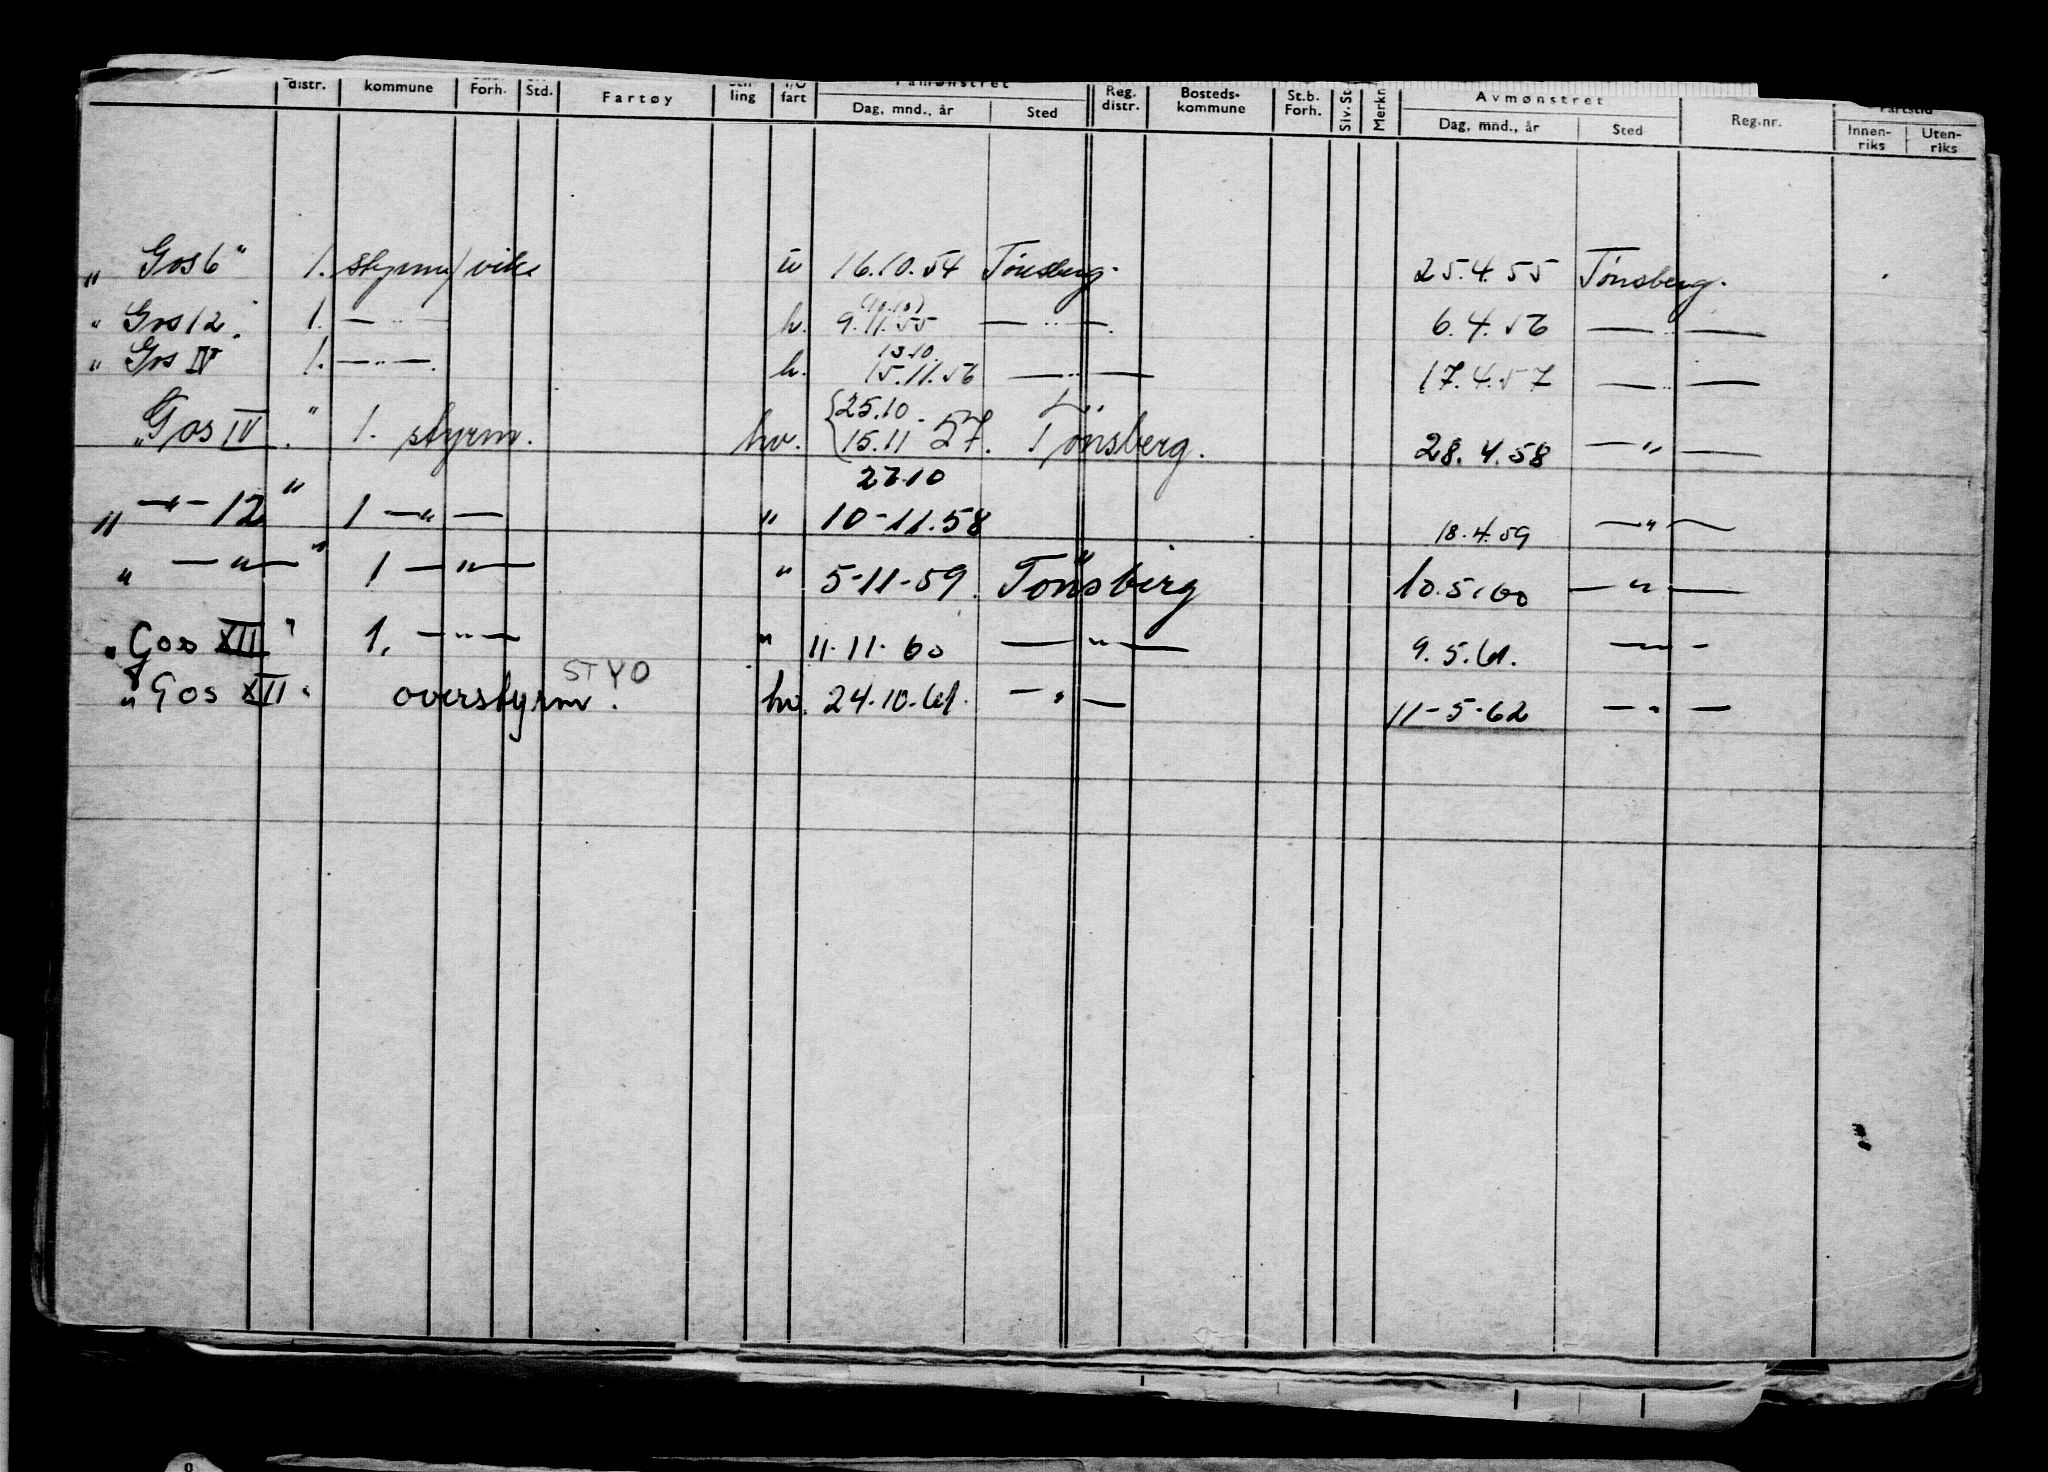 distr. kommune Forh. Std. Fartøy ling fart Påmønstret Reg. distr. Bosteds- kommune St.b. Forh. Siv.St Merkn Avmønstret Reg.nr. Fartstid
Dag, mnd., år Sted Dag, mnd., år Sted Innen- riks Uten- riks
„ Gos 6" 1. styrm/ 16.10.54 Tönsberg. 25.4.55 Tønsberg.
" Gos 12. 1. — " — h. 9.11.55 — " — 6.4.56 — " —
13.10.
" Gos IV 1. — " — h. 15.11.56 — " — 17.4.57 — " —
25.10
„Gos IV." 1. styrm. hv. 15.11 - 57. Tønsberg. 28.4.58 — " —
27.10
„ — " — 12" 1 — " — " 10-11.58 18.4.59 — " —
„ — " — " 1 — " — " 5-11-59. Tönsberg 10.5.60 — " —
„Gos XII" 1. — " — " 11.11.60 — " — 9.5.61. — " —
STYO
„Gos XII" overstyrm. hv. 24.10.61. — " — 11-5-62 — " —